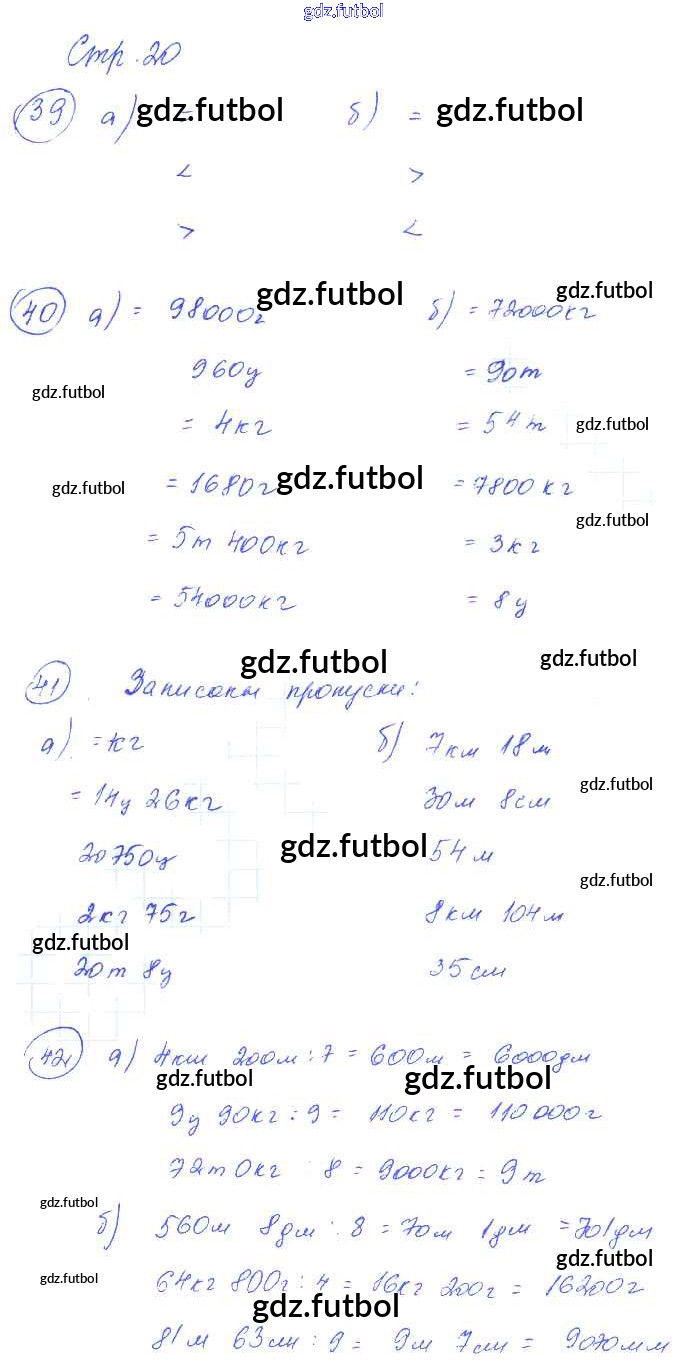 gdz.futbol
Стр. 20
39 а) gdz.futbol = б) = gdz.futbol
< >
> <
40 а) = 98000г gdz.futbol б) = 72000кг gdz.futbol
960ц = 90т
gdz.futbol
= 4кг = 54т gdz.futbol
gdz.futbol = 1680г gdz.futbol = 7800кг
gdz.futbol
= 5т 400кг = 3кг
= 54000кг = 8ц
gdz.futbol gdz.futbol
41. Записаны пропуски:
а) = кг б) 7км 18м
= 14ц 26кг 30м 8см gdz.futbol
20750ц gdz.futbol 54м
gdz.futbol
2кг 75г 8км 104м
gdz.futbol
20т 8ц 35см
42 а) 4км 200м : 7 = 600м = 6000дм
gdz.futbol gdz.futbol
9ц 90кг : 9 = 110кг = 110000г
72т 0кг : 8 = 9000кг = 9т
gdz.futbol
б) 560м 8дм : 8 = 70м 1дм = 701дм
gdz.futbol
gdz.futbol 64кг 800г : 4 = 16кг 200г = 16200г
gdz.futbol
81м 63см : 9 = 9м 7см = 9070мм